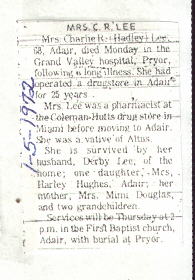 MRS. C. R. LEE
Mrs Charlie R. (Hadley) Lee,
68, Adair, died Monday in the
Grand Valley hospital, Pryor,
following a long illness. She had
operated a drugstore in Adair
for 25 years.
Mrs. Lee was a pharmacist at
the Coleman-Hutts drug store in
Miami before moving to Adair.
She was a native of Altus.
She is survived by her
husband, Derby Lee, of the
home; one daughter, Mrs.
Harley Hughes, Adair; her
mother, Mrs. Mimi Douglas,
and two grandchildren.
Services will be Thursday at 2
p.m. in the First Baptist church,
Adair, with burial at Pryor.
1-5-1972